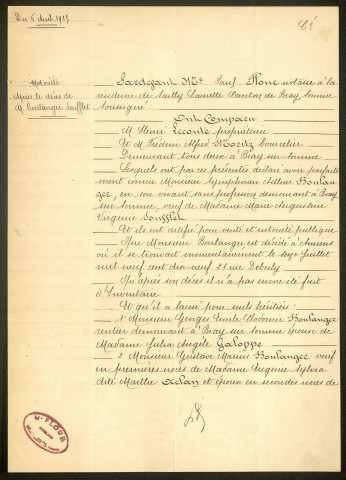 Notoriété
Après le décès de
M. Boulanger Soufflet
Pardevant Me Paul Flour notaire à la
résidence de Sailly Laurette canton de Bray Somme
soussigné
Ont Comparu
M. Henri Leconte propriétaire
Et M. Alfred bourrelier
Demeurant tous deux à Bray sur Somme
Lesquels ont par ces présentes déclaré avoir parfaite
ment connu Monsieur Symphorien Boulan
ger en son vivant sans profession demeurant à Bray
sur Somme, veuf de Madame Marie Augustine
Virginie Soufflet
Et ils ont certifié pour vérité et notoriété publique
Que Monsieur Boulanger est décédé à Amiens
où il se trouvait momentanément le seize juillet
mil neuf cent dix neuf 21 rue
Qu'après son décès il n'a pas encore été fait
d'Inventaire
Et qu'il a laissé pour seuls héritiers :
1° Monsieur Georges Emile Boulanger
rentier demeurant à Bray sur Somme époux de
Madame Julia Angèle Galoppe
2° Monsieur Gustave Marius Boulanger veuf
en premières noces de Madame Eugénie
dite Marthe et époux en secondes noces de
Me FLOUR